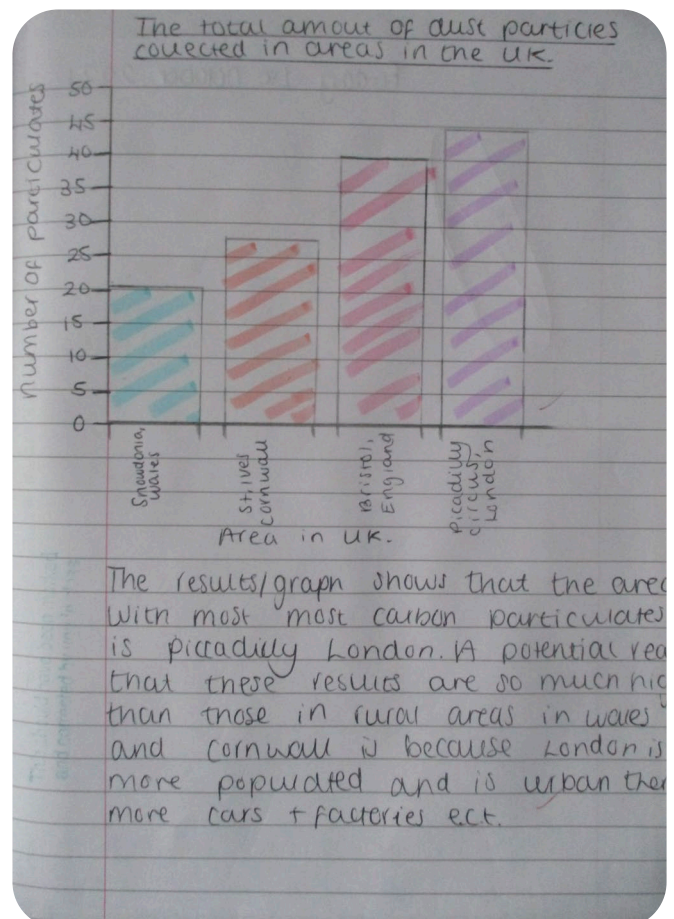 The total amout of dust particles
collected in areas in the UK.
number of particulates
50
45
40
35
30
25
20
15
10
5
0
Snowdonia,
Wales
St,ives
Cornwall
Bristol,
England
Picadilly
Circus,
London
Area in UK.
The results/graph shows that the area
with most most carbon particulates
is piccadilly London. A potential rea
that these results are so much hig
than those in rural areas in wales
and cornwall is because London is
more populated and is urban ther
more cars + factories ect.